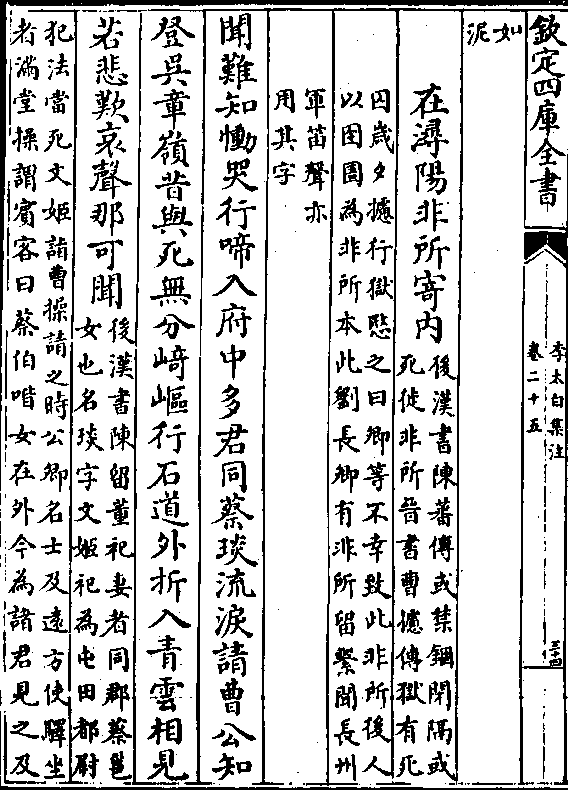 欽定四庫全書
李太白集注
卷二十五
三十四
如
泥
在潯陽非所寄内
後漢書陳蕃傳或禁錮閉隔或
死徙非所晉書曹攄傳獄有死
囚歳夕攄行獄愍之曰卿等不幸致此非所後人
以囹圄為非所本此劉長卿有非所留繫聞長州
軍笛聲亦
用其字
聞難知慟哭行啼入府中多君同蔡琰流淚請曹公知
登吳章嶺昔與死無分﨑嶇行石道外折入青雲相見
若悲歎哀聲那可聞
後漢書陳留董祀妻者同郡蔡邕
女也名琰字文姬祀為屯田都尉
犯法當死文姬詣曹操請之時公卿名士及遠方使驛坐
者滿堂操謂賓客曰蔡伯喈女在外今為諸君見之及